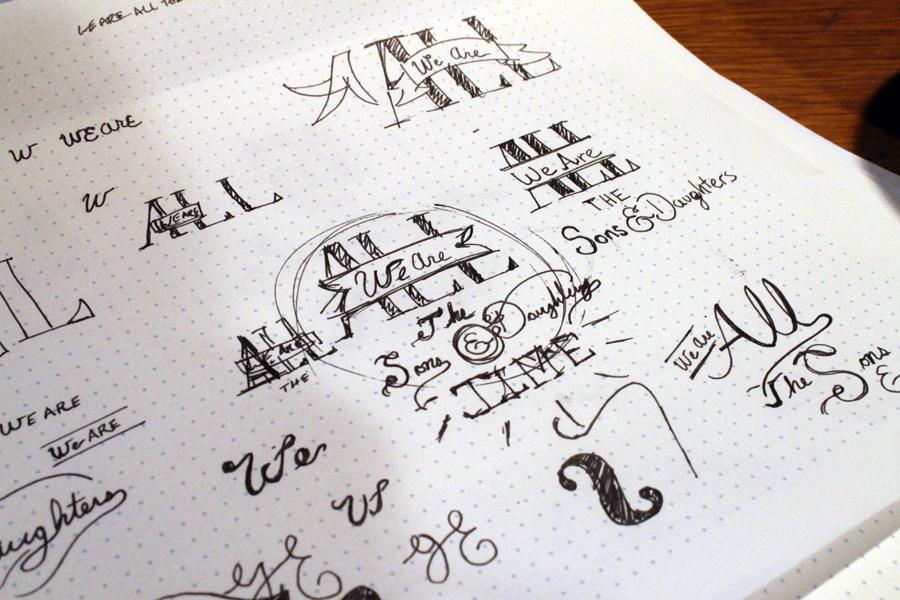 WE ARE ALL THE
ALL
We Are
W WE ARE
W
ALL
WE ARE
ALL
We Are
THE
Sons & Daughters
ALL
We Are
The
Sons & Daughters
TIME
ALL
WE ARE
THE
We are
All
The Sons
&
WE ARE
We ARE
We